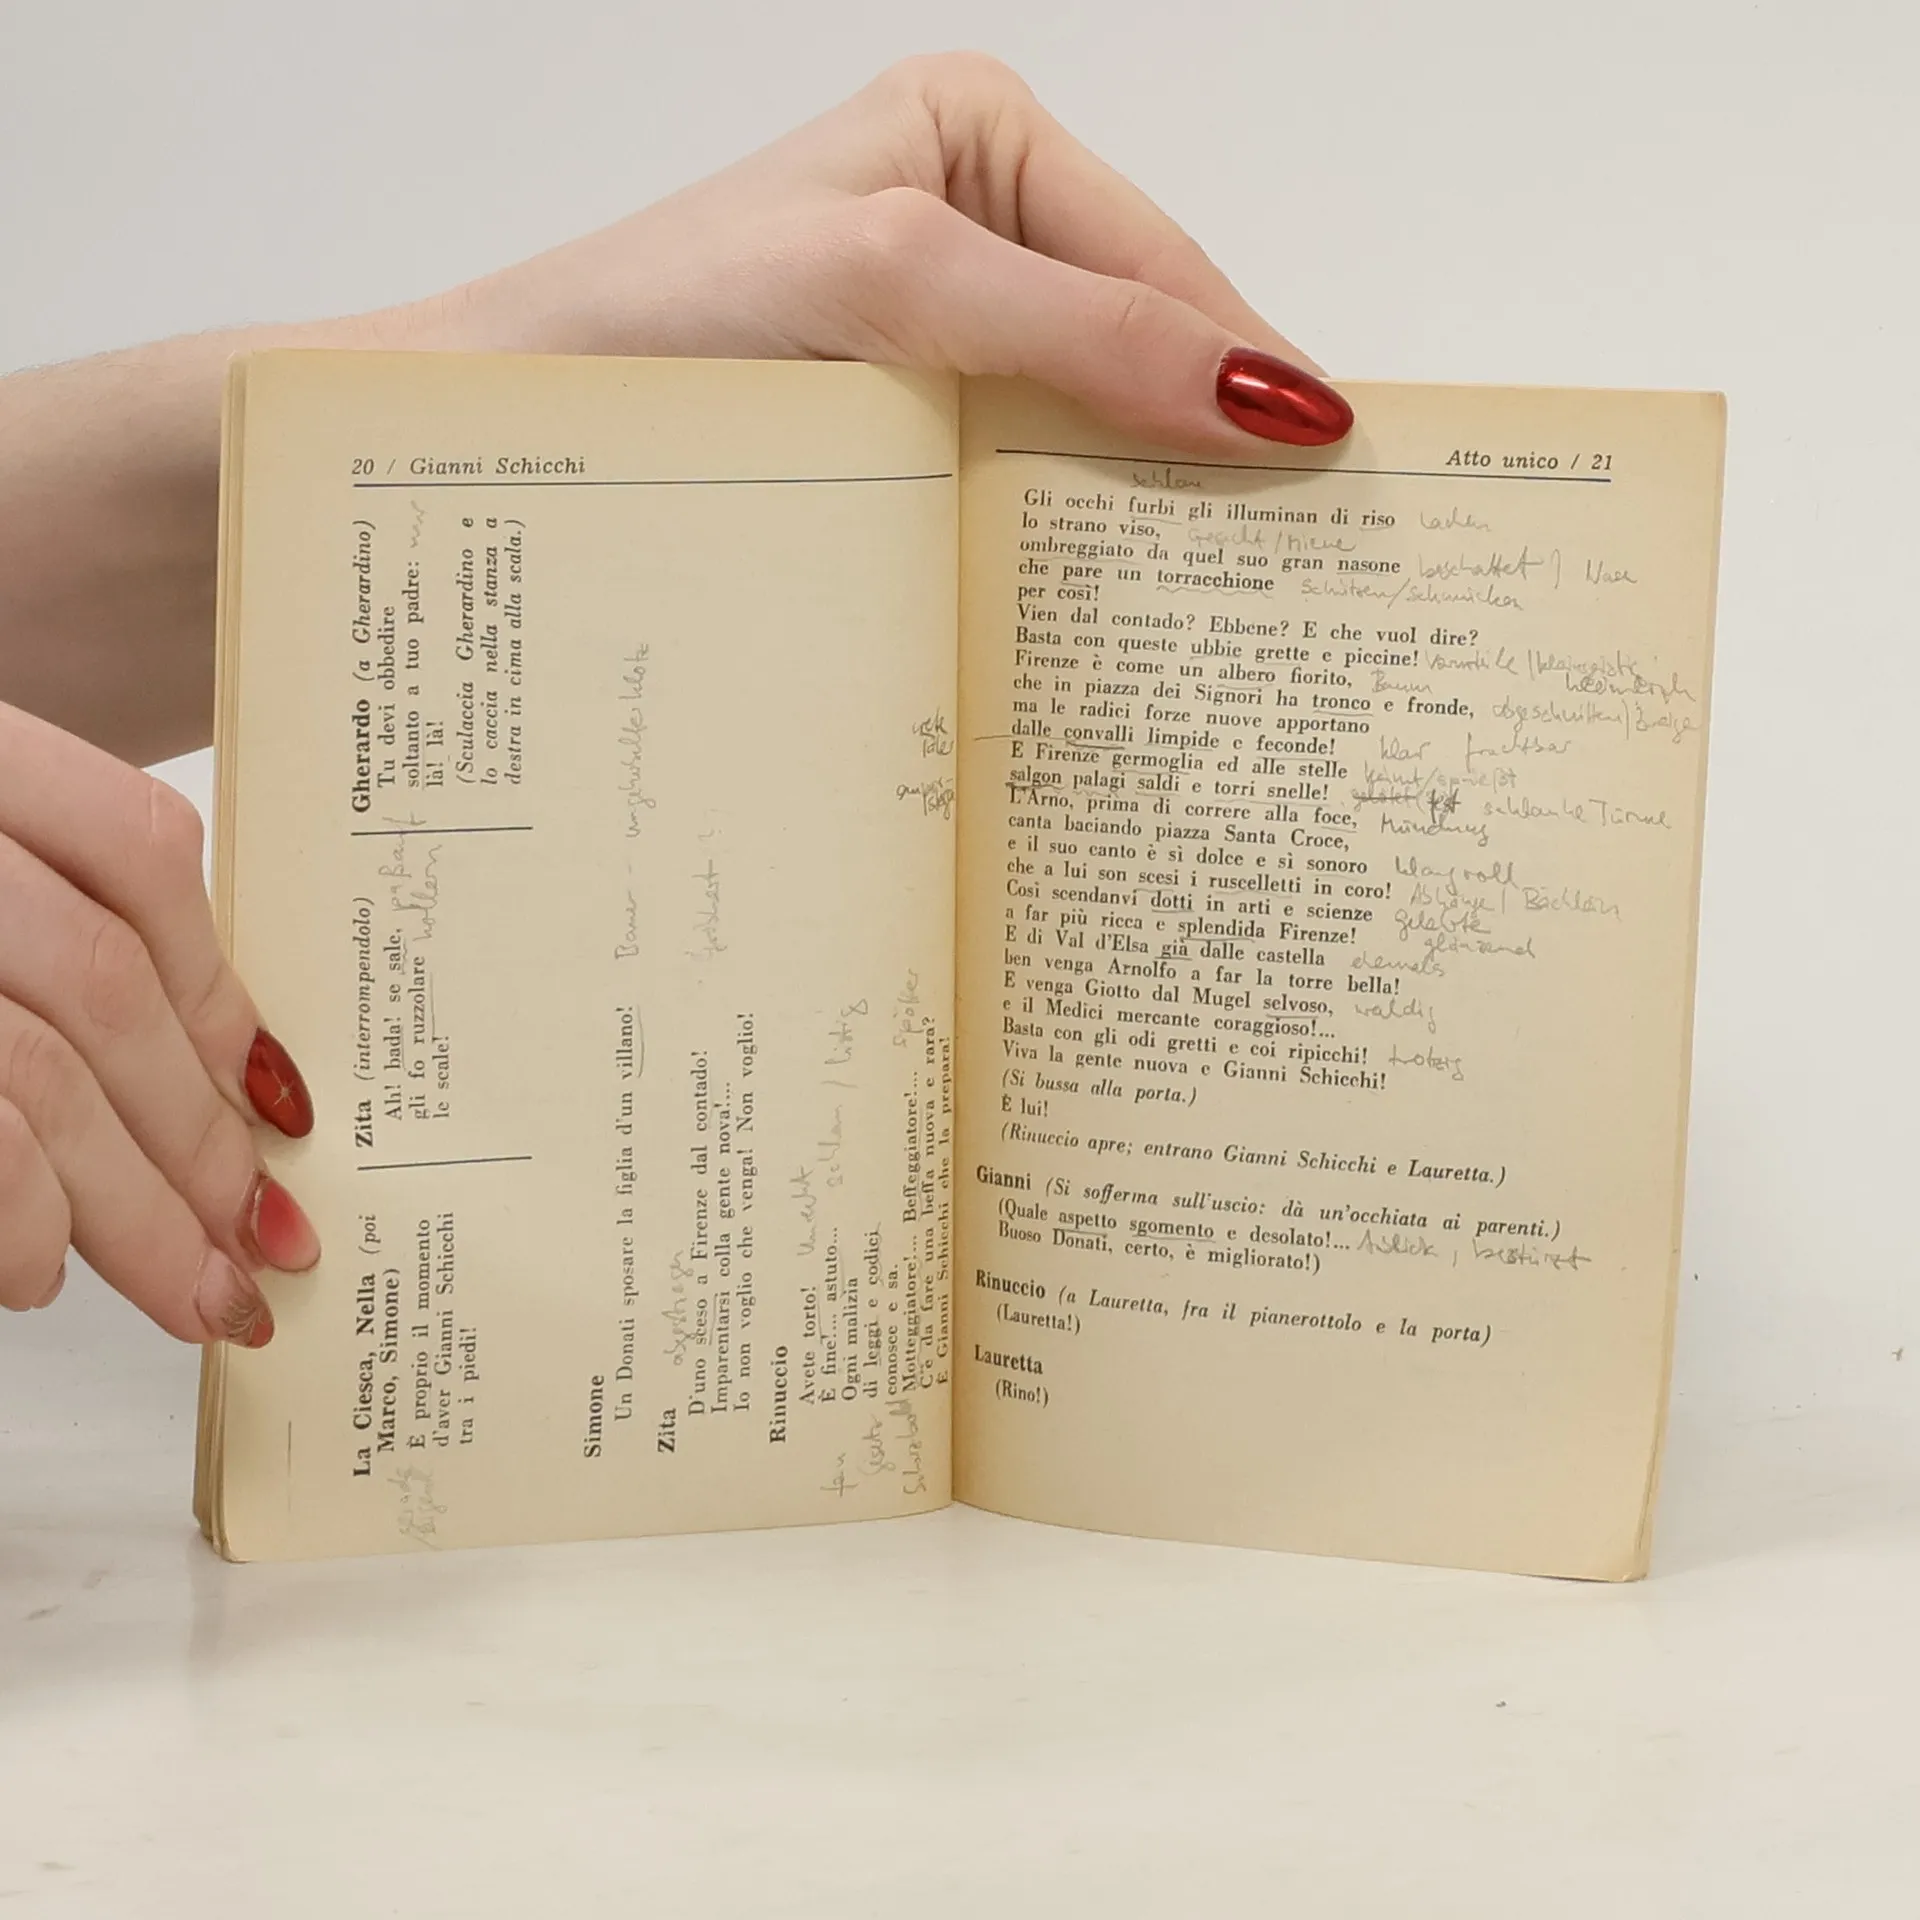 20 / Gianni Schicchi
La Ciesca, Nella (poi
Marco, Simone)
È proprio il momento
d'aver Gianni Schicchi
tra i piedi!
Zita (interrompendolo)
Ah! bada! se sale,
gli fo ruzzolare
le scale!
Gherardo (a Gherardino)
Tu devi obbedire
soltanto a tuo padre: nur
là! là!
(Sculaccia Gherardino e
lo caccia nella stanza a
destra in cima alla scala.)
Simone
Un Donati sposare la figlia d'un villano! Bauer - ungehobelter Klotz
Zita
D'uno sceso a Firenze dal contado!
Imparentarsi colla gente nova!...
Io non voglio che venga! Non voglio!
Rinuccio
Avete torto! Unrecht
È fine!... astuto... schlau / listig
Ogni malizia
di leggi e codici
conosce e sa.
Motteggiatore!... Beffeggiatore!... Spötter
C'è da fare una beffa nuova e rara?
È Gianni Schicchi che la prepara!
Atto unico / 21
schlau
Gli occhi furbi gli illuminan di riso lachen
lo strano viso, Gesicht / Miene
ombreggiato da quel suo gran nasone beschattet / Nase
che pare un torracchione schützen/schmücken
per così!
Vien dal contado? Ebbene? E che vuol dire?
Basta con queste ubbie grette e piccine!
Firenze è come un albero fiorito, Baum
che in piazza dei Signori ha tronco e fronde, abgeschnitten / Zweige
ma le radici forze nuove apportano
dalle convalli limpide e feconde! klar fruchtbar
E Firenze germoglia ed alle stelle keimt/sprießt
salgon palagi saldi e torri snelle! fest schlanke Türme
L'Arno, prima di correre alla foce, Mündung
canta baciando piazza Santa Croce,
e il suo canto è sì dolce e sì sonoro klangvoll
che a lui son scesi i ruscelletti in coro! Abhänge / Bächlein
Così scendanvi dotti in arti e scienze gelehrte
a far più ricca e splendida Firenze! glänzend
E di Val d'Elsa già dalle castella ehemals
ben venga Arnolfo a far la torre bella!
E venga Giotto dal Mugel selvoso, waldig
e il Medici mercante coraggioso!...
Basta con gli odi gretti e coi ripicchi! trotzig
Viva la gente nuova e Gianni Schicchi!
(Si bussa alla porta.)
È lui!
(Rinuccio apre; entrano Gianni Schicchi e Lauretta.)
Gianni (Si sofferma sull'uscio: dà un'occhiata ai parenti.)
(Quale aspetto sgomento e desolato!... Anblick, bestürzt
Buoso Donati, certo, è migliorato!)
Rinuccio (a Lauretta, fra il pianerottolo e la porta)
(Lauretta!)
Lauretta
(Rino!)